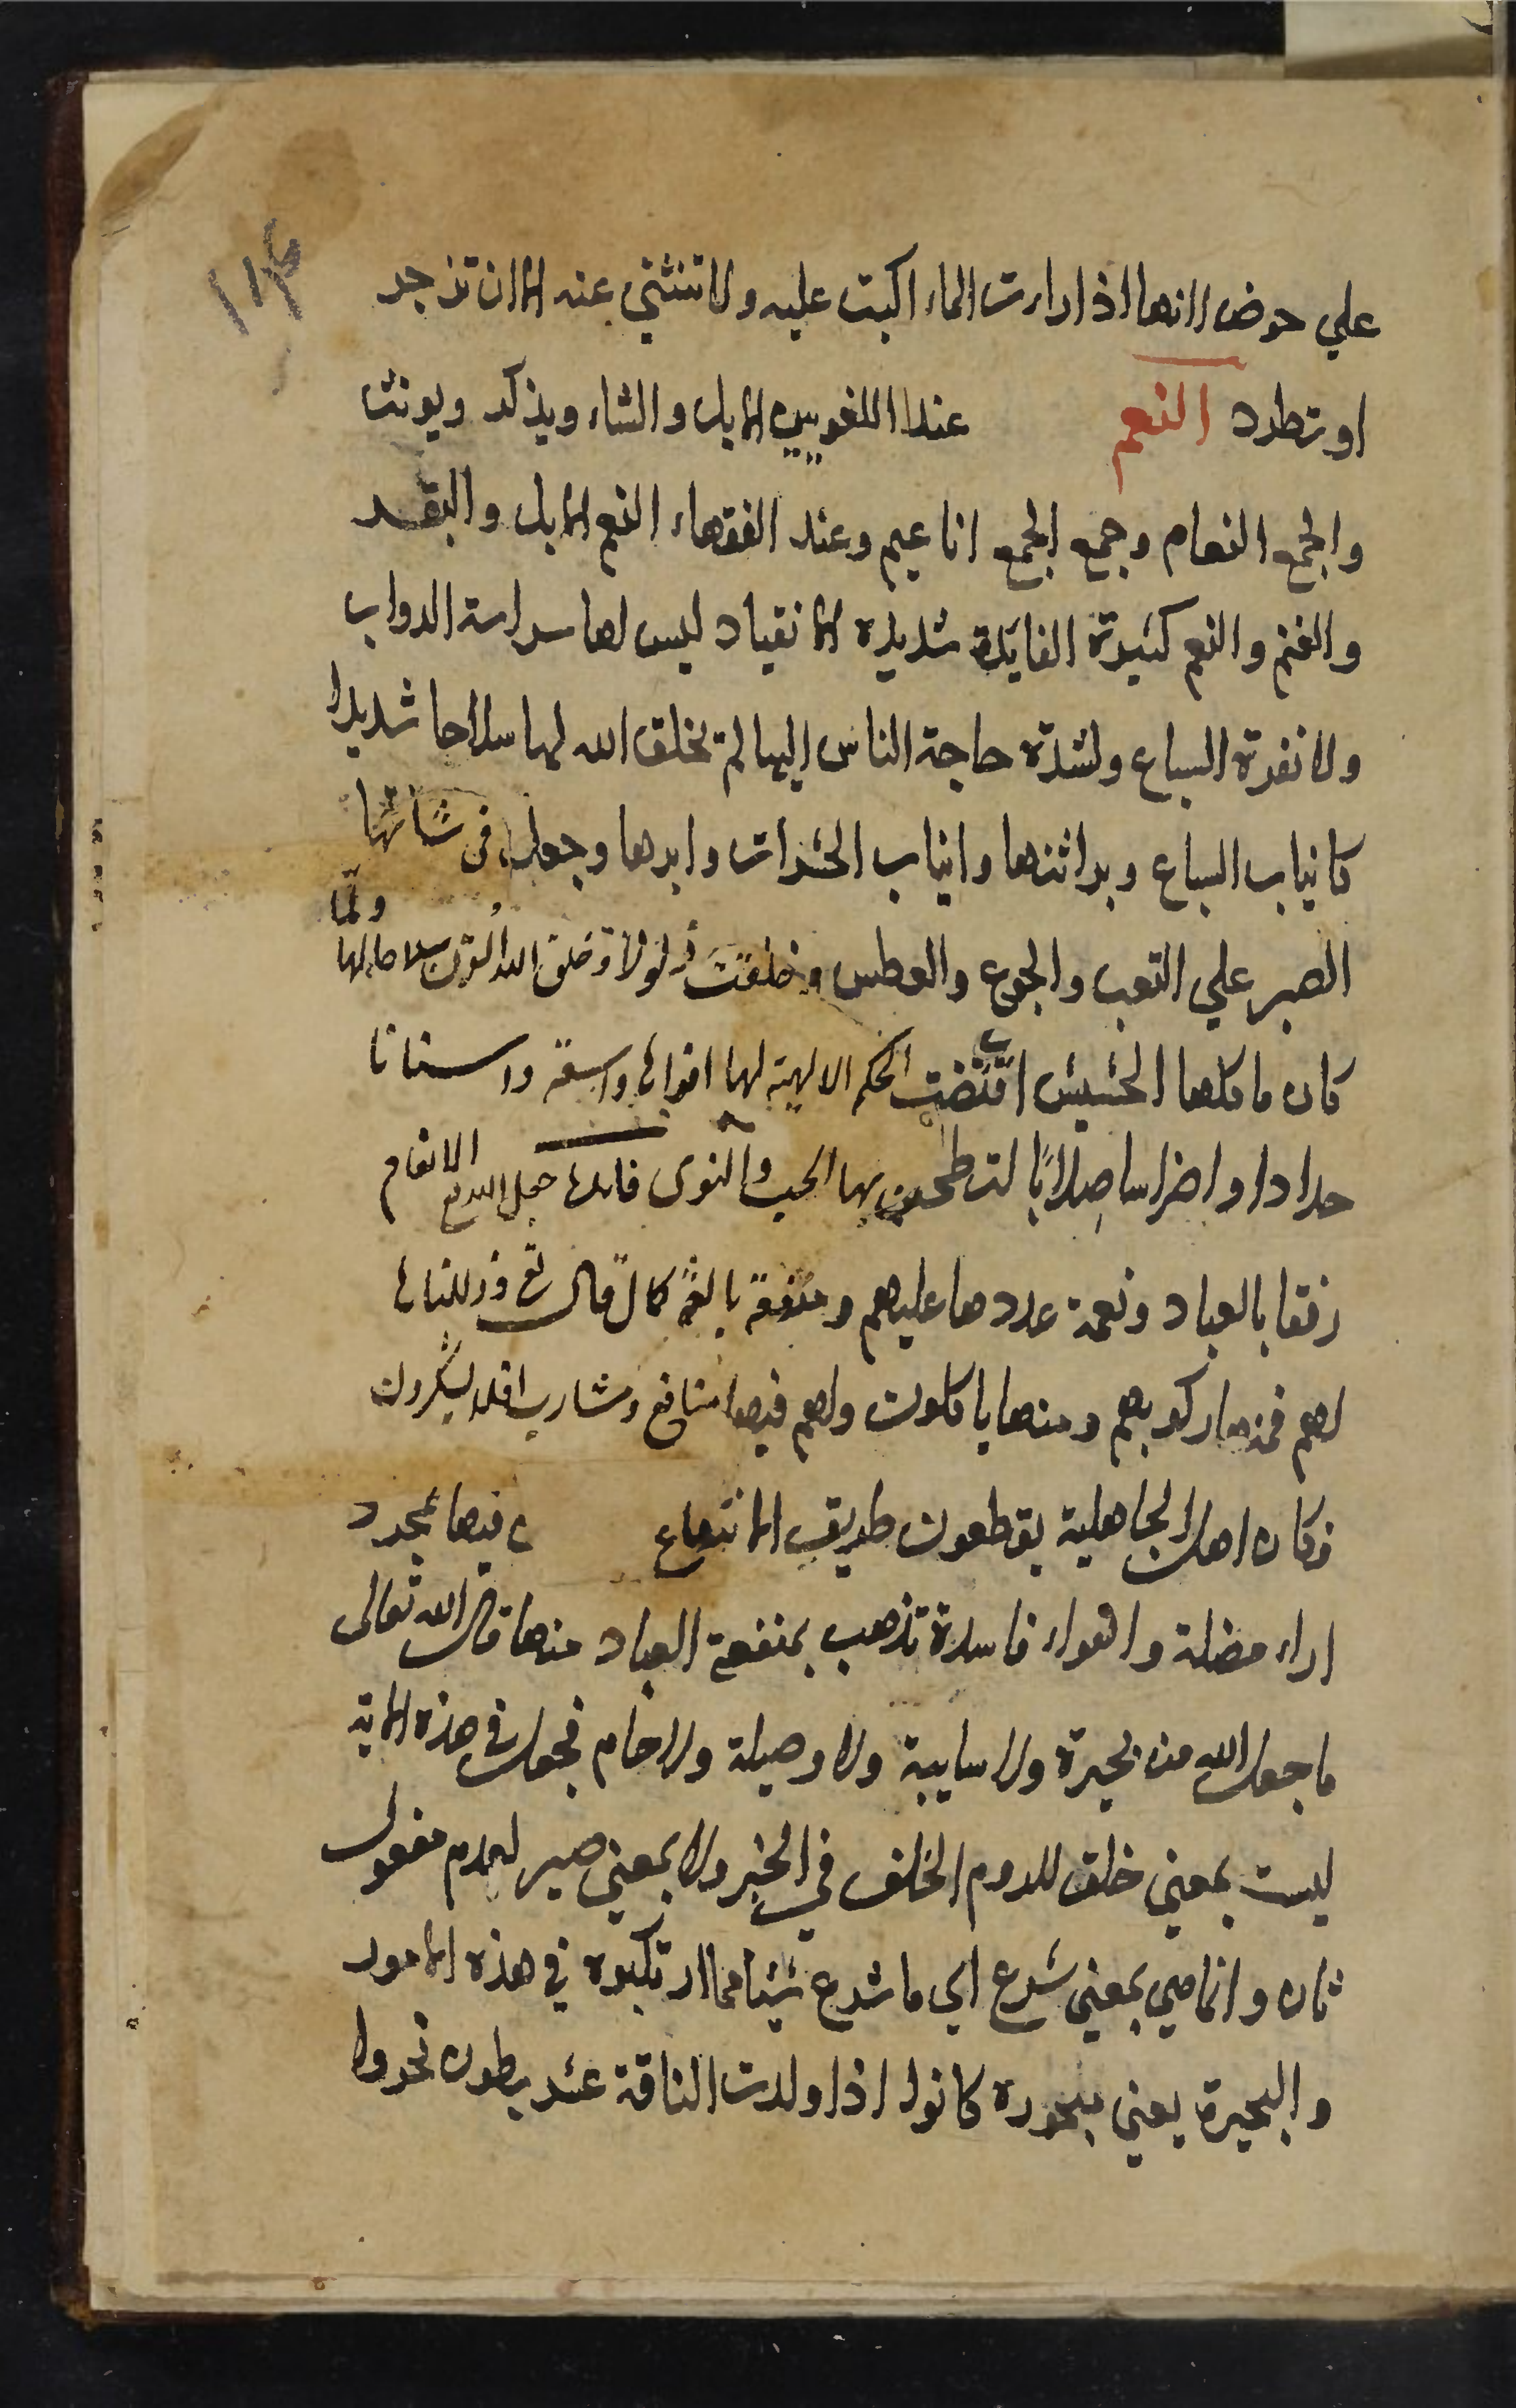 ١١٤
علي حوض لانها اذا رات الماء اكبت عليه ولا تنثني عنه الا ان تزجر
او تطرد النعم عند اللغويين الابل والشاء ويذكر ويونث
والجمع انعام وجمع الجمع اناعيم وعند الفقهاء النعم الابل والبقر
والغنم والنعم كثيرة الفايدة شديدة الانقياد ليس لها شراسة الدواب
ولا نفرة السباع ولشدة حاجة الناس اليها لم يخلق الله لها سلاحا شديدا
كانياب السباع وبراثنها وانياب الحشرات وابرها وجعل في شانها
الصبر علي التعب والجوع والعطش وخلقت ذلولا وخلق الله القرن سلاحا لها ولما
كان ماكلها الحشيش اقتضت الحكم الالهية لها افواها واسعة واسنانا
حدادا واضراسا صلابا لتطحن بها الحب والنوى فايدة جعل الله تع الانعام
رفقا بالعباد ونعمة عددها عليهم ومنفعة بالغة كما قال تع وذللناها
لهم فمنها ركوبهم ومنها ياكلون ولهم فيها منافع ومشارب افلا يشكرون
فكان اهل الجاهلية يقطعون طريق الانتفاع فيها بمجرد
اراء مضلة واهواء فاسدة تذهب بمنفعة العباد منها قال الله تعالى
ما جعل الله من بحيرة ولا سايبة ولا وصيلة ولا حام فجعل في هذه الاية
ليست بمعني خلق للدوم الخلف في الخبر ولا بمعني صير لعدم مفعول
ثان وانما هي بمعني شرع اي ما شرع شيئا مما ارتكبوه في هذه الامور
والبحيرة يعني مبحورة كانوا اذا ولدت الناقة عشر بطون نحروا